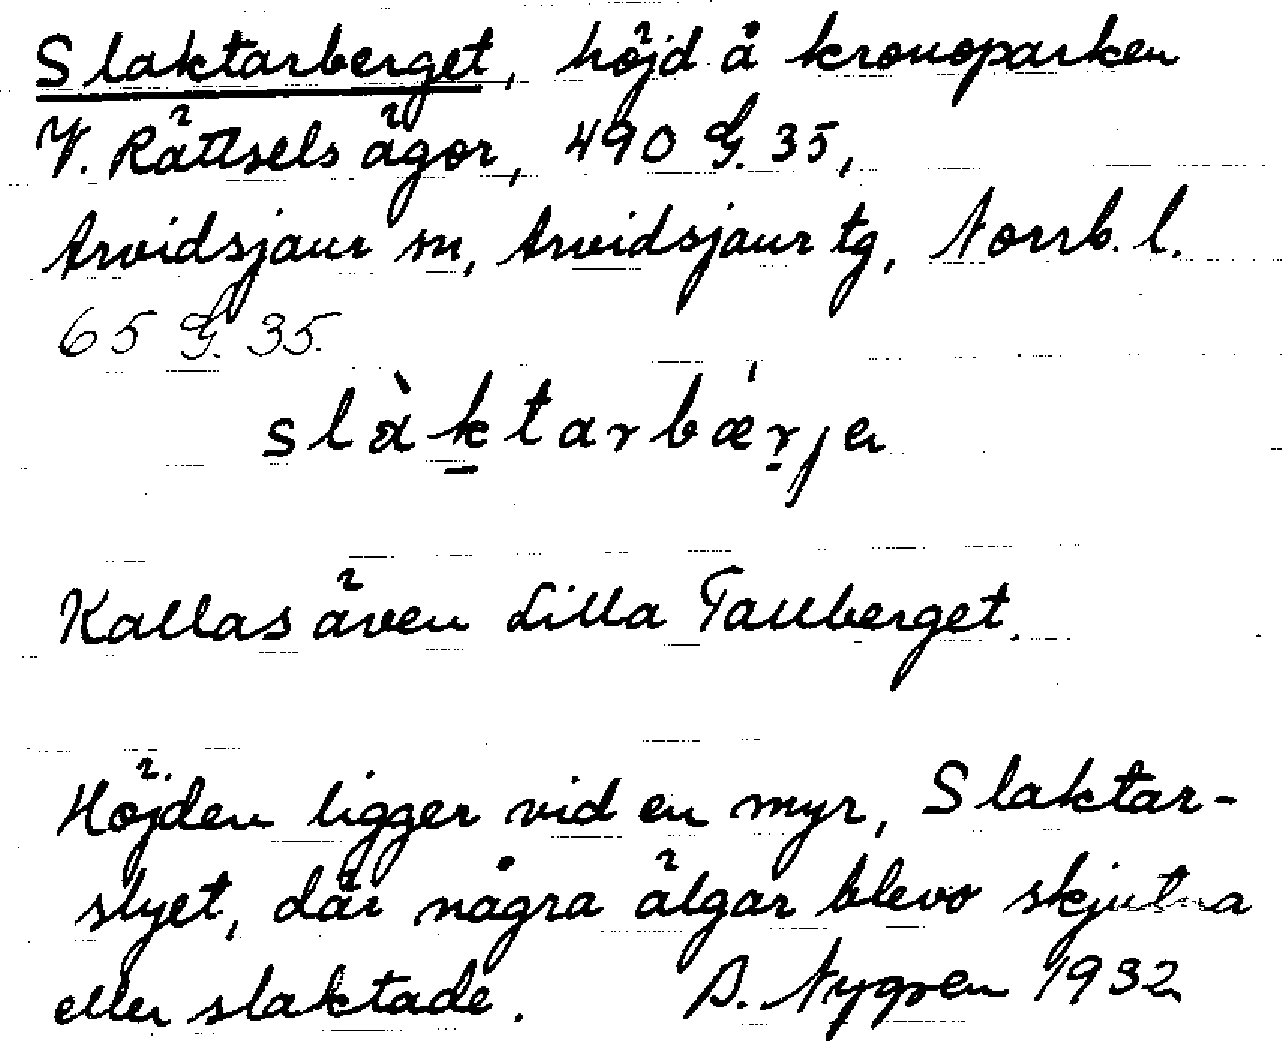 Slaktarberget, höjd å kronoparken
V. Rättsels ägor, 490 G. 35,
Arvidsjaur sn, Arvidsjaur tg, Norrb. l.
65 G. 35.
slàktarbǽrjə
Kallas även Lilla Tallberget.
Höjden ligger vid en myr, Slaktar-
slyet, där några älgar blevo skjutna
eller slaktade. B. Nygren 1932